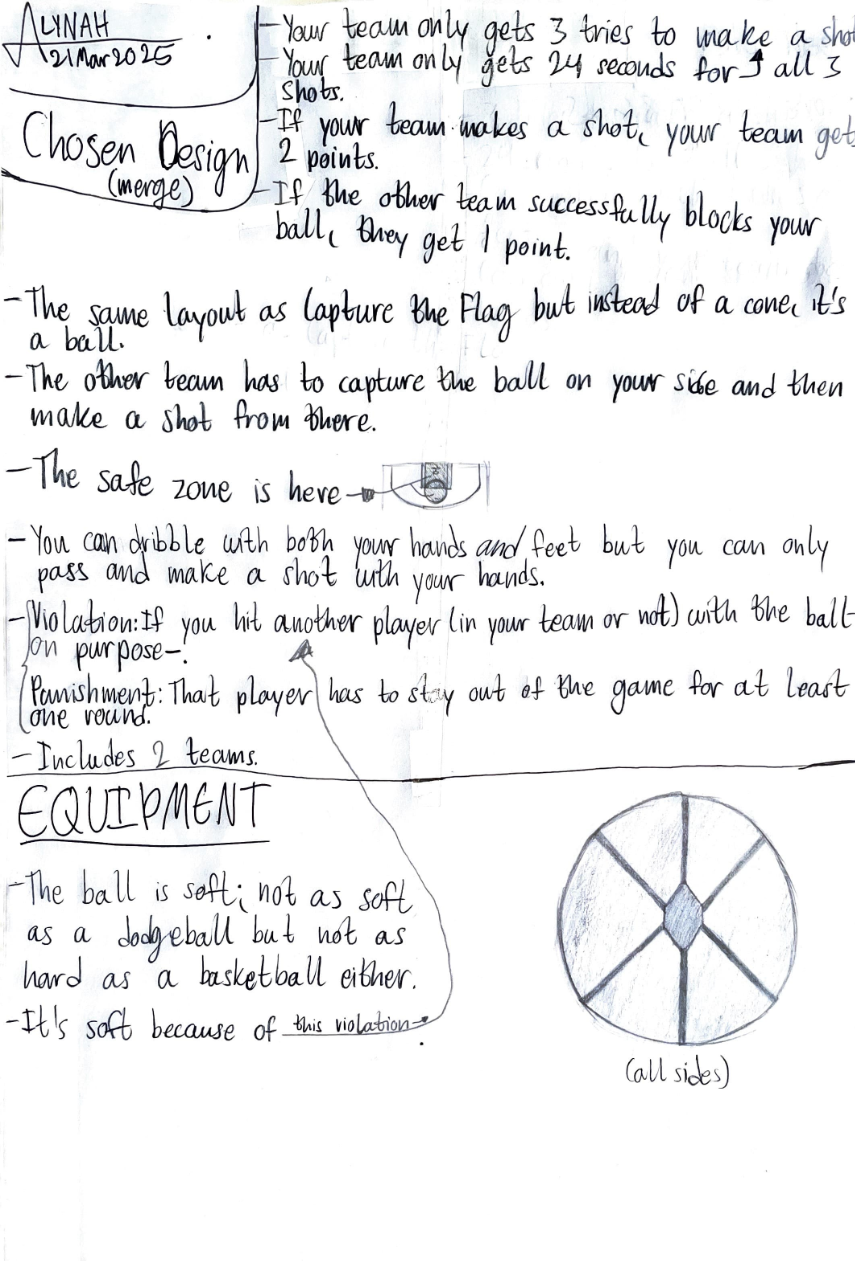 ALYNAH
21Mar2025
Chosen Design
(merge)
-Your team only gets 3 tries to make a shot
-Your team only gets 24 seconds for all 3
shots.
-If your team makes a shot, your team gets
2 points.
-If the other team successfully blocks your
ball, they get 1 point.
-The same layout as Capture the Flag but instead of a cone, it's
a ball.
-The other team has to capture the ball on your side and then
make a shot from there.
-The safe zone is here
-You can dribble with both your hands and feet but you can only
pass and make a shot with your hands.
-Violation: If you hit another player (in your team or not) with the ball
on purpose-.
Punishment: That player has to stay out of the game for at least
one round.
-Includes 2 teams.
EQUIPMENT
-The ball is soft; not as soft
as a dodgeball but not as
hard as a basketball either.
-It's soft because of this violation
(all sides)